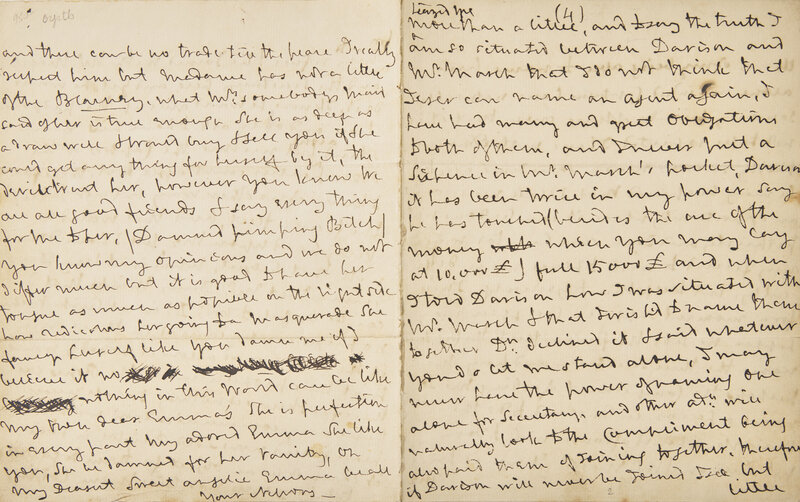 and there can be no trade till the peace I really
respect him but Madame has not a little
of the Blarney. what Mrs. somebody's Maid
said of her is true enough She is as deep as
a draw well & would buy & sell you if she
could get any thing for herself by it, the
Devil trust her, however you know we
are all good friends I say every thing
for me to her, (Damned pimping Bitch)
you know my opinions and we do not
differ much but it is good to have her
tongue as much as possible on the right side
how rediculous her going to a Masquerade She
fancy herself like you damn me if I
believe it no
nothing in this World can be like
my own dear Emma's She is perfection
in every part my adored Emma She like
you, She be damned for her vanity, Oh
my Dearest Sweet angelic Emma be all
Your Nelsons —
(4)
more than a little, and to say the truth I
am so situated between Davison and
Mr. March that I do not think that
I ever can name an agent again, I
have had many and great obligations
to both of them, and I never put a
Sixpence in Mr. March's pocket, Davison
it has been twice in my power say
he has touched (besides the use of the
money when you may say
at 10,000 £) full 15000 £ and when
I told Davison how I was situated with
Mr. March & that I wish'd to name them
together Dn. declined it & said whatever
you do let me stand alone, I may
never have the power of naming one
alone for Secretary. and other adls. will
naturally look to the Compliment being
also paid them of joining together, therefore
if Davison will never be joined I see but
little